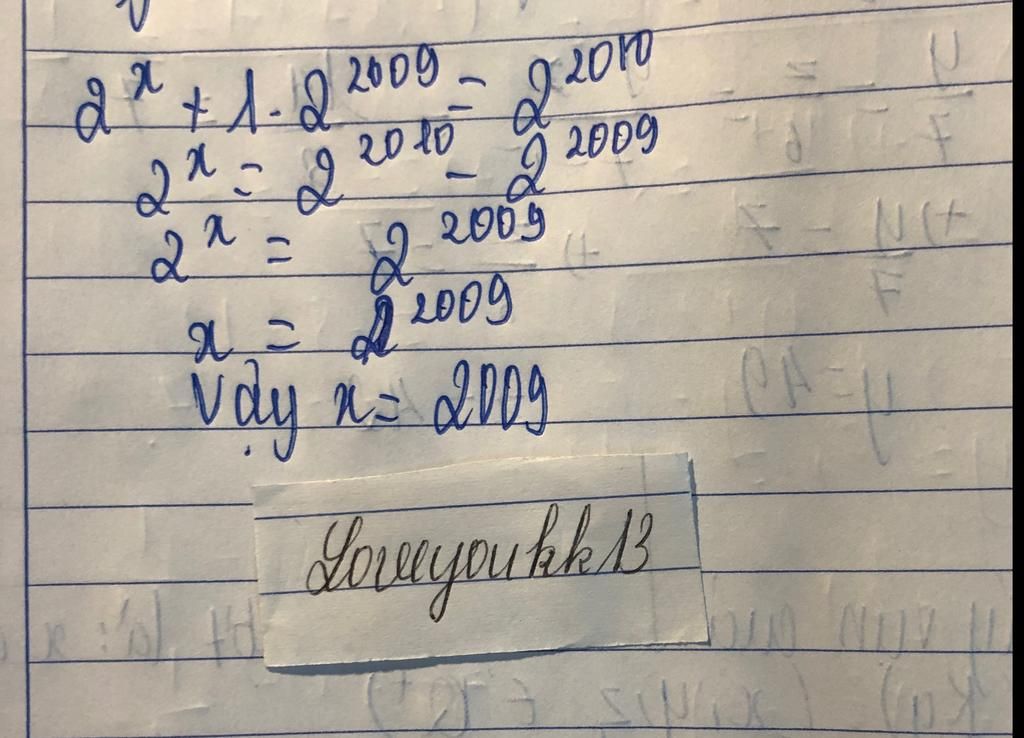 2^x + 1 . 2^2009 = 2^2010
2^x = 2^2010 - 2^2009
2^x = 2^2009
x = 2^2009
Vậy x = 2009
Loveyoukk13